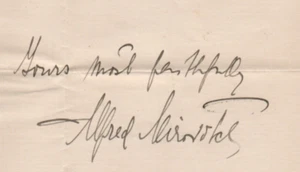 Yours most faithfully
Alfred